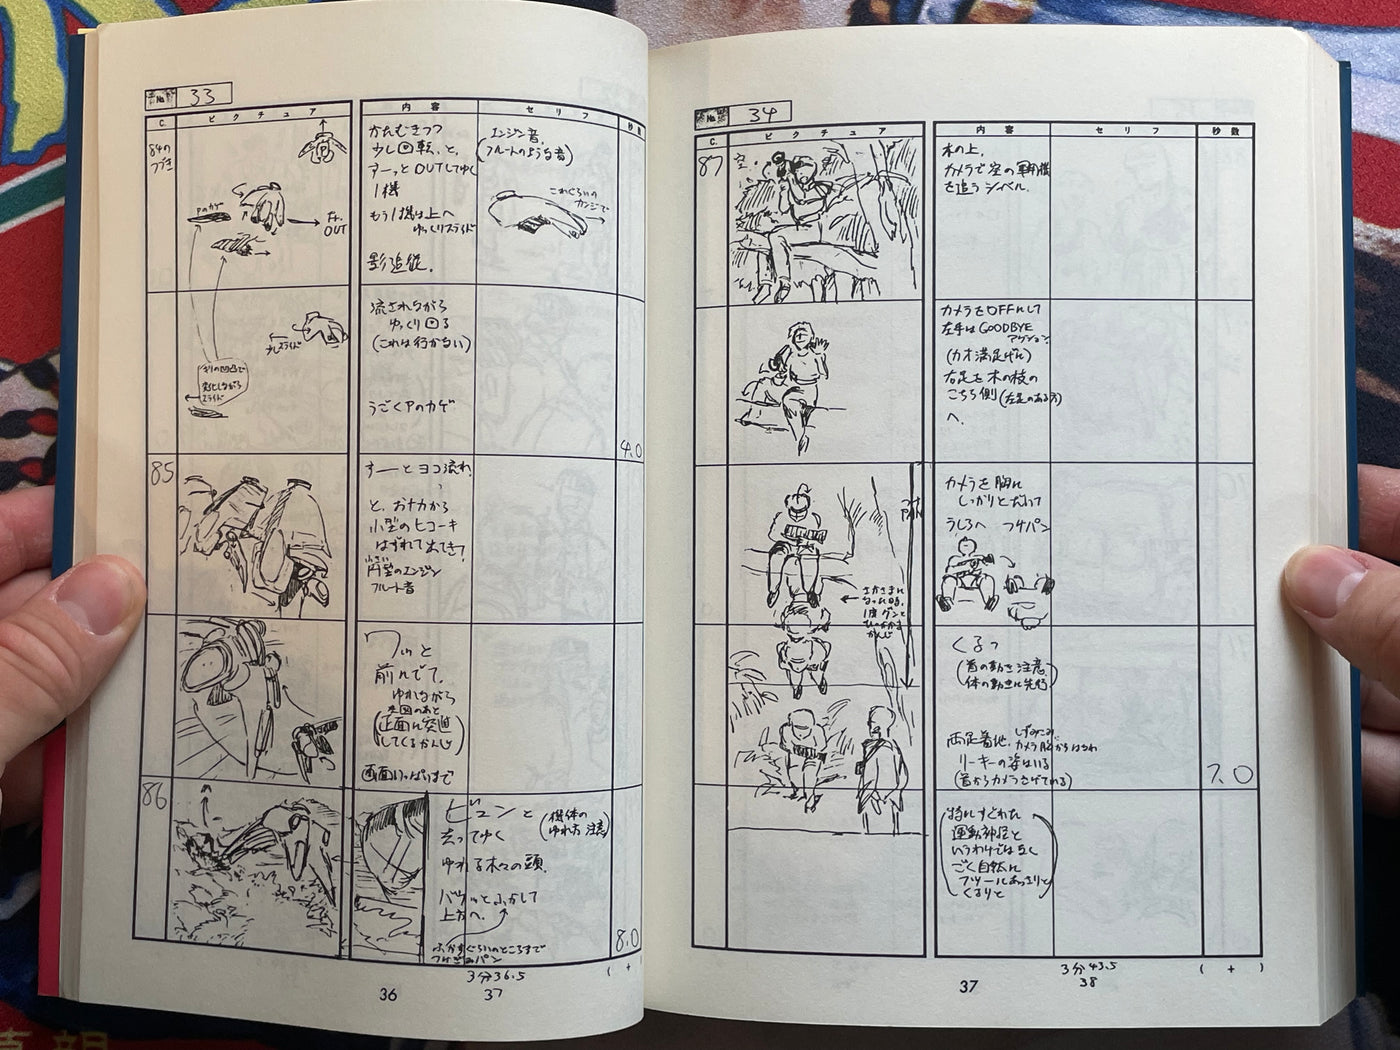 No. 33
C. ピクチュア 内容 セリフ 秒数
84の
つづき
Pのカゲ
Fr.
OUT
かたむきつつ
少し回転、と、
すーっとOUTしてゆく
1機
もう1機は上へ
ゆっくりスライド
影追従.
エンジン音.
(フルートのような音)
これぐらいの
カンジで
少しスライド
流されながら
ゆっくり回る
(これは行かない)
うごくPのカゲ
4.0
85
すーーとヨコ流れ.
と、おナカから
小型のヒコーキ
はずれて出てきて
円型のエンジン
フルート音
ワッと
前にでて.
ゆれながら
(正面に突進
してくるかんじ)
画面いっぱいまで
86
ビュンと
去ってゆく
(機体の
ゆれ方 注意)
ゆれる木々の頭.
バウッとふかして
上方へ.
ふかすぐらいのところまで
つけPAN
8.0
3分36.5
37
36
No. 34
C. ピクチュア 内容 セリフ 秒数
87
空.
木の上.
カメラで空の軍用機
を追うシベル.
カメラをOFFにして
左手はGOODBYE
アクション.
(カオ満足げに)
右足を木の枝の
こちら側(左足のある方)
へ.
カメラを胸に
しっかりとだいて
うしろへ
PAN
さかさまに
なった時、
1度グンと
かんじ
くるっ
(首の動き注意.
体の動きに先行)
両足着地.
カメラ胸からはなれ
リーキーの姿はいる
(首からカメラさげてる)
7.0
(特にすぐれた
運動神経と
いうわけでは なく
ごく自然に
フツーにあっさりと
くるりと)
3分43.5
38
( + )
37